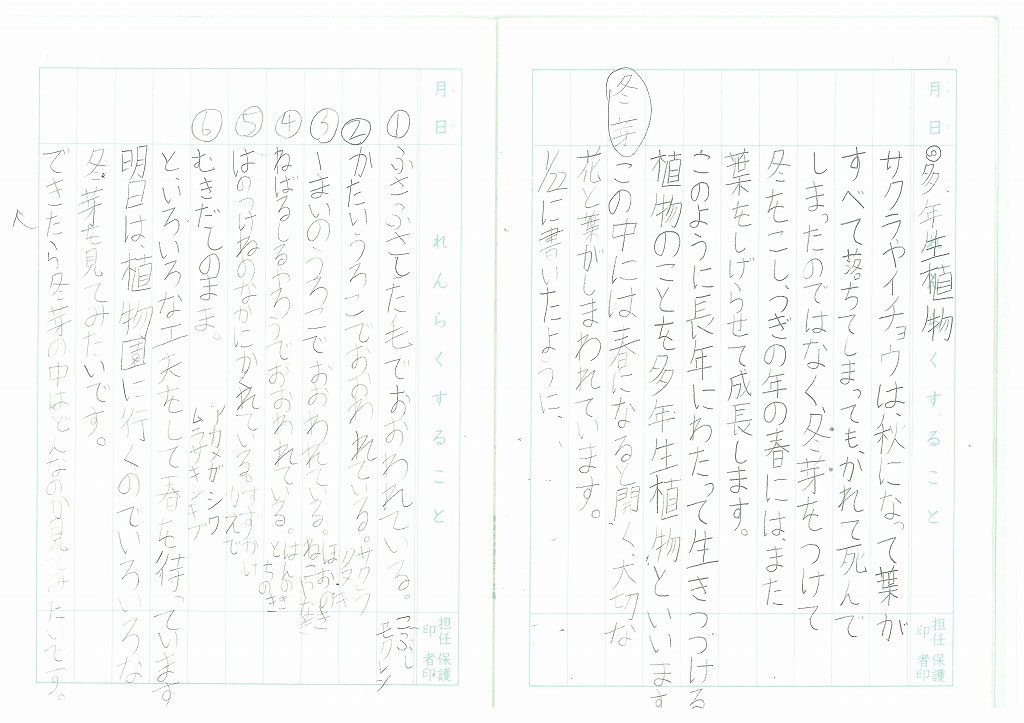 月 日
れんらくすること
担任印
保護者印
⑨多年生植物
サクラやイチョウは、秋になって葉が
すべて落ちてしまっても、かれて死んで
しまったのではなく、冬芽をつけて
冬をこし、つぎの年の春には、また
葉をしげらせて成長します。
このように長年にわたって生きつづける
植物のことを多年生植物といいます
冬芽
この中には春になると開く、大切な
花と葉がしまわれています。
1/22に書いたように、
月 日
れんらくすること
担任印
保護者印
①ふさふさした毛でおおわれている。こぶし モクレン
②かたいうろこでおおわれている。サクラ
③一まいのうろこでおおわれている。ほおのき
④ねばるしるでおおわれている。とちのき
⑤はのつけねのなかにかくれている。すずかけ
⑥むきだしのまま。アカメガシワ ムラサキシキブ
と、いろいろな工夫をして春を待っています
明日は、植物園に行くのでいろいろな
冬芽を見てみたいです。
できたら冬芽の中はどんなのか見てみたいです。